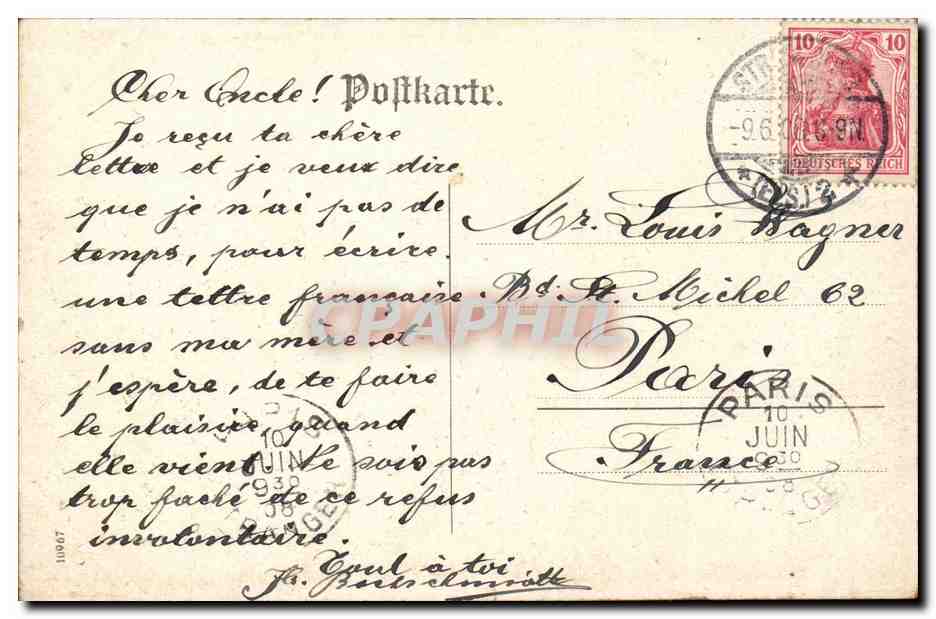 Cher Oncle! Postkarte.
Je reçu ta chère
lettre et je veux dire
que je n'ai pas de
temps, pour écrire
une lettre française
sans ma mère et
j'espère, de te faire
le plaisir, quand
elle vient. Ne sois pas
trop faché de ce refus
involontaire.
Tout à toi
10967
10 10
DEUTSCHES REICH
-9.6.
8-9N
(ELS.) 2
Mr. Louis Wagner
Bd. St. Michel 62
Paris
France
PARIS
10
JUIN
9 30
08
10
JUIN
9 30
08
ETRANGER
CPAPHIL